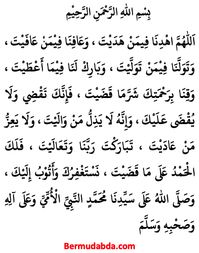 بِسْمِ اللهِ الرَّحْمٰنِ الرَّحِيْمِ
اَللّٰهُمَّ اهْدِنَا فِيمَنْ هَدَيْتَ ، وَعَافِنَا فِيمَنْ عَافَيْتَ ،
وَتَوَلَّنَا فِيمَنْ تَوَلَّيْتَ ، وَبَارِكْ لَنَا فِيمَا أَعْطَيْتَ ،
وَقِنَا بِرَحْمَتِكَ شَرَّمَا قَضَيْتَ ، فَإِنَّكَ تَقْضِي وَلَا
يُقْضَى عَلَيْكَ ، وَإِنَّهُ لَا يَذِلُّ مَنْ وَالَيْتَ ، وَلَا يَعِزُّ
مَنْ عَادَيْتَ ، تَبَارَكْتَ رَبَّنَا وَتَعَالَيْتَ ، فَلَكَ
الْحَمْدُ عَلَى مَا قَضَيْتَ ، نَسْتَغْفِرُكَ وَأَتُوبُ إِلَيْكَ ،
وَصَلَّى اللهُ عَلَى سَيِّدِنَا مُحَمَّدٍ النَّبِيِّ الْأُمِّيِّ وَعَلَى آلِهِ
وَصَحْبِهِ وَسَلَّمَ
Bermudabda.com